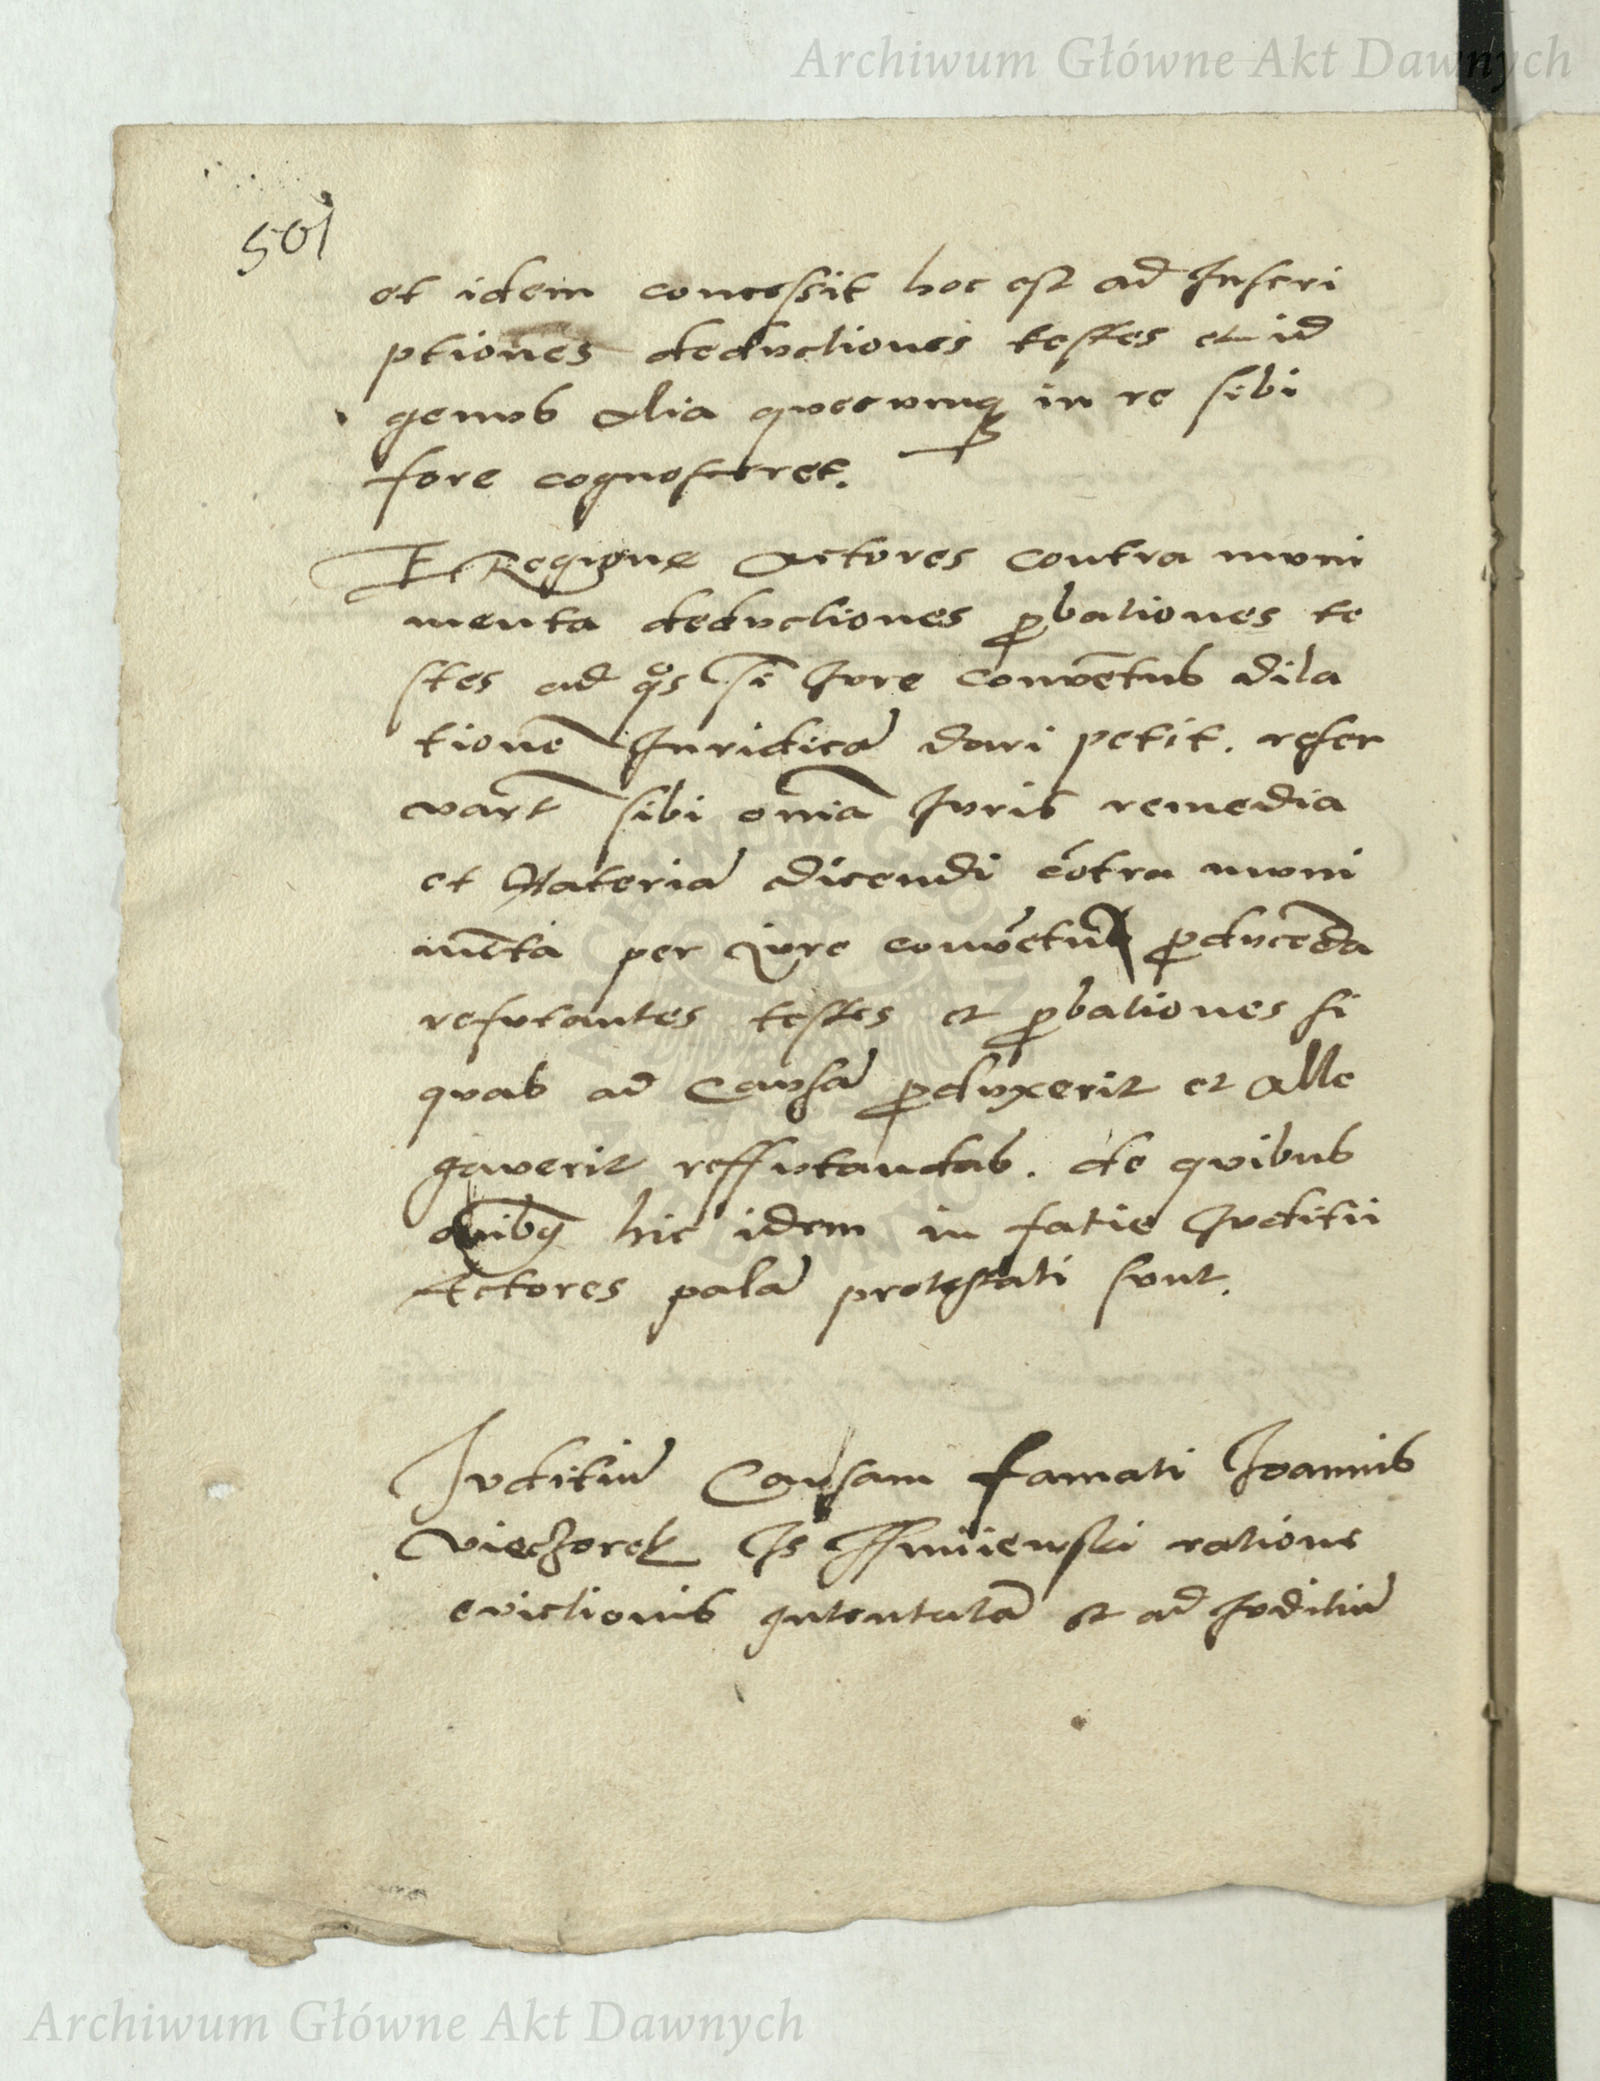 Archiwum Główne Akt Dawnych
501
et idem concessit hoc est ad Inscri
ptiones deductiones testes et id
genus alia quecunq in re sibi
fore cognosceret.
E Regione Actores contra muni
menta deductiones ꝓbationes te
stes ad qͦs si Jure conuētus dila
tionē Juridicā dari petit. reser
varūt sibi om̄ia Juris remedia
et Materiā dicendi cōtra muni
mēta per jure conuētū ꝓducēda
refutantes testes et ꝓbationes si
quas ad Causā ꝓduxerit et alle
gaverit reffutandas. de quibus
om̄ibq hic idem in fatie Juditii
Actores palā protestati sunt.
Juditiū Causam famati Joannis
vieczorek
evictionis intentatā et ad Juditiū
Archiwum Główne Akt Dawnych